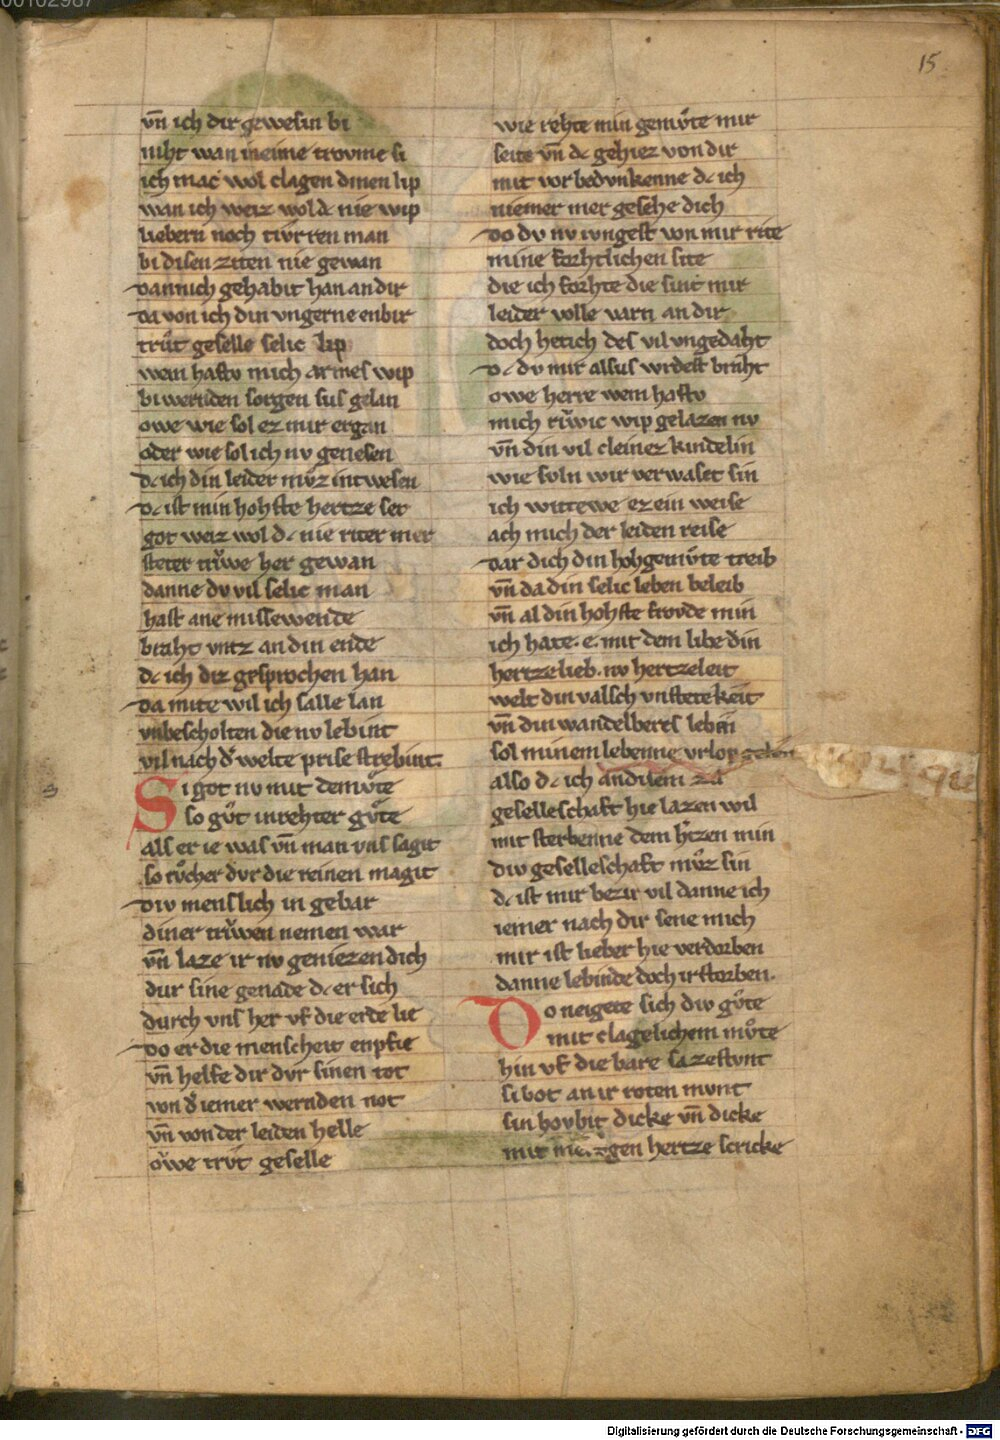 15
vn̄ ich dir gewesin bi
niht wan in eime trovme si
ich mac wol clagen dinen lip
wan ich weiz wol dc nie wip
liebern noch tivrren man
bi disen ziten nie gewan
dannich gehabit han an dir
da von ich din vngerne enbir
trůt geselle selic lip
wem hastv mich armes wip
bi wernden sorgen sus gelan
owe wie sol ez mir ergan
oder wie sol ich nv genesen
dc ich din leider mv̊z intwesen
dc ist min hohste hertze ser
got weiz wol dc nie riter mer
steter trv̌we her gewan
danne dv vil selic man
hast ane missewende
braht vntz an din ende
dc ich diz gesprochen han
da mite wil ich salle lan
vnbescholten die nv lebint
vil nach d̾ welte prise strebint.
Si got nv mit demv̊te
so gv̊t in rehter gv̊te
als er ie was vn̄ man vns sagit
so rv̊cher dvr die reinen magit
div menslich in gebar
diner trv̌wen nemen war
vn̄ laze ir nv geniezen dich
dur sine genade dc er sich
durch vns her vf die erde lie
do er die menscheit enpfie
vn̄ helfe dir dvr sinen tot
von d̾ iemer wernden not
vn̄ von der leiden helle
ow̌e trvt geselle
wie rehte min gemv̊te mir
seite vn̄ dc gehiez von dir
mit vor bedvnkenne dc ich
niemer mer gesehe dich
do dv nv ivngest von mir rite
mine forhtlichen site
die ich forhte die sint mir
leider volle varn an dir
doch hetich des vil vngedaht
dc dv mir alsus wrdest braht
owe herre wem hastv
mich rv̌wic wip gelazen nv
vn̄ din vil cleinez kindelin
wie svln wir verwaset sin
ich wittewe ez ein weise
ach mich der leiden reise
dar dich din hohgemv̊te treib
vn̄ da din selic leben beleib
vn̄ al din hohste frovde min
ich hate. e. mit dem libe din
hertzelieb. nv hertzeleit
welt din valsch vnstetekeit
vn̄ din wandelberes lebin
sol minem lebenne vrlop gebin
also dc ich an disem zil
geselleschaft hie lazen wil
mit sterbenne dem h̾zen min
div geselleschaft mv̊z sin
dc ist mir bezir vil danne ich
iemer nach dir sene mich
mir ist lieber hie verdorben
danne lebinde doch irstorben.
Do neigete sich div gv̊te
mit clagelichem mv̊te
hin vf die bare sa zestvnt
si bot an ir roten mvnt
sin hovbit dicke vn̄ dicke
mit hertze scricke
Digitalisierung gefördert durch die Deutsche Forschungsgemeinschaft - DFG